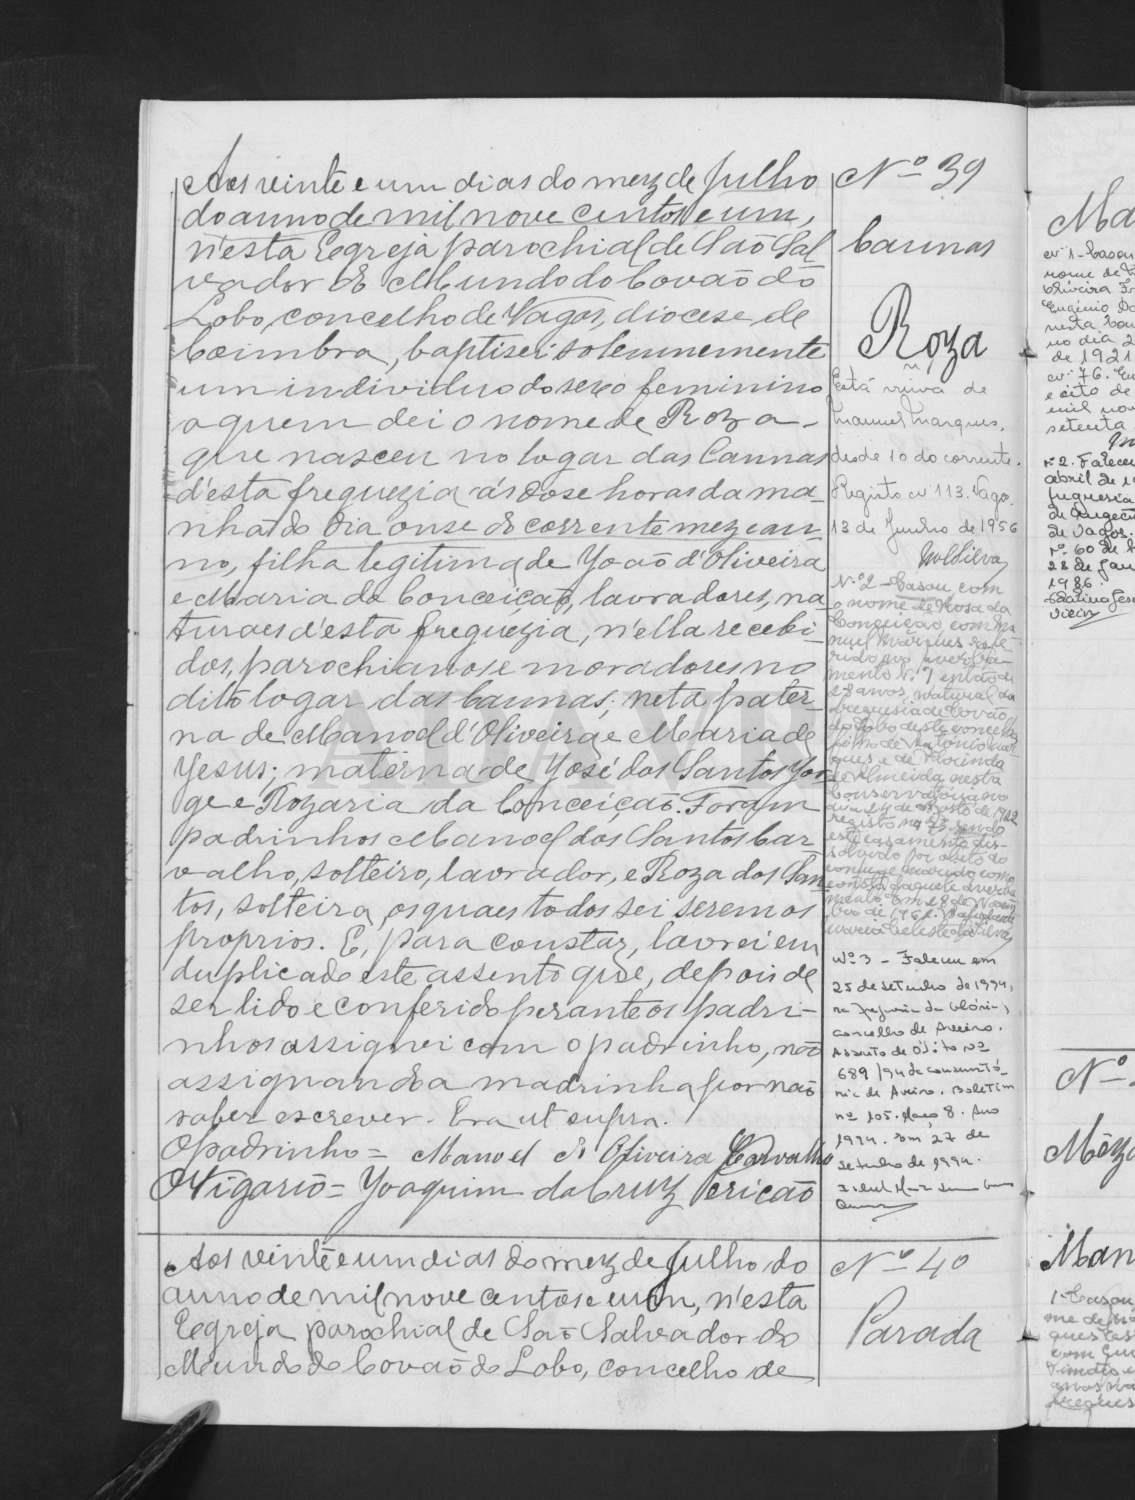 Aos vinte e um dias do mez de Julho
do anno de mil nove centos e um,
n'esta Egreja parochial de São Sal
vador do Mundo do Covão do
Lobo, concelho de Vagos, diocese de
Coimbra, baptisei solemnemente
um individuo do sexo feminino
a quem dei o nome de Roza -
que nasceu no logar das Cannas
d'esta freguezia ás dose horas da ma_
nhã do dia onse do corrente mez e an_
no, filha legitima de João d'Oliveira
e Maria da Conceição, lavradores, na_
turaes d'esta freguezia, n'ella recebi_
dos, parochianos e moradores no
dito logar das Cannas; neta pater_
na de Manoel d'Oliveira e Maria de
Jesus; materna de José dos Santos Jor
ge e Rozaria da Conceição. Foram
padrinhos Manoel dos Santos Car_
valho, solteiro, lavrador, e Roza dos San
tos, solteira, os quaes todos sei serem os
proprios. E, para constar, lavrei em
duplicado este assento que, depois de
ser lido e conferido perante os padri-
nhos assignei com o padrinho, não
assignando a madrinha por não
saber escrever. Era ut supra.
O padrinho = Manoel de Oliveira Carvalho
O Vigario = Joaquim da Cruz Pericão
Nº 39
Cannas
Roza
Está viúva de
Manuel Marques,
desde 10 do corrente.
Registo nº 113. Vagos.
13 de Junho de 1956
N.º 2 - Casou com
o nome de Rosa da
Conceição com Ma-
nuel Marques refe-
rido no averba-
mento N.º 1 então de
28 anos, natural da
freguesia de Covão
do Lobo deste concelho
filho de António Mar-
ques e de
de Almeida, nesta
Conservatória no
dia 24 de Agosto de 1922
registo nº 75 sendo
este casamento dis-
solvido por óbito do
conjuge marido como
consta daquele averba
mento. Em 28 de
bro de
Maria Celeste da Silva
Nº 3 - Faleceu em
25 de setembro de 1994,
na freguesia da Glória,
concelho de Aveiro.
Assento de Óbito nº
689/94 da conservató-
ria de Aveiro. Boletim
nº 105. Maço 8. Ano
1994. Em 27 de
setembro de 1994.
Aos vinte e um dias do mez de Julho do
anno de mil nove centos e um, n'esta
Egreja parochial de São Salvador do
Mundo do Covão do Lobo, concelho de
Nº 40
Parada
Ma
nº 1 - Casou
nome de
Oliveira
Eugénio
nesta
no dia 2
de 1921
nº 76.
e oito de
mil nov
setenta
nº 2. Faleceu
abril de
freguesia
de
de Vagos.
nº 60 de
28 de Jan
1986
Nº
Mêza
Man
1 - Casou
me de
ques
com